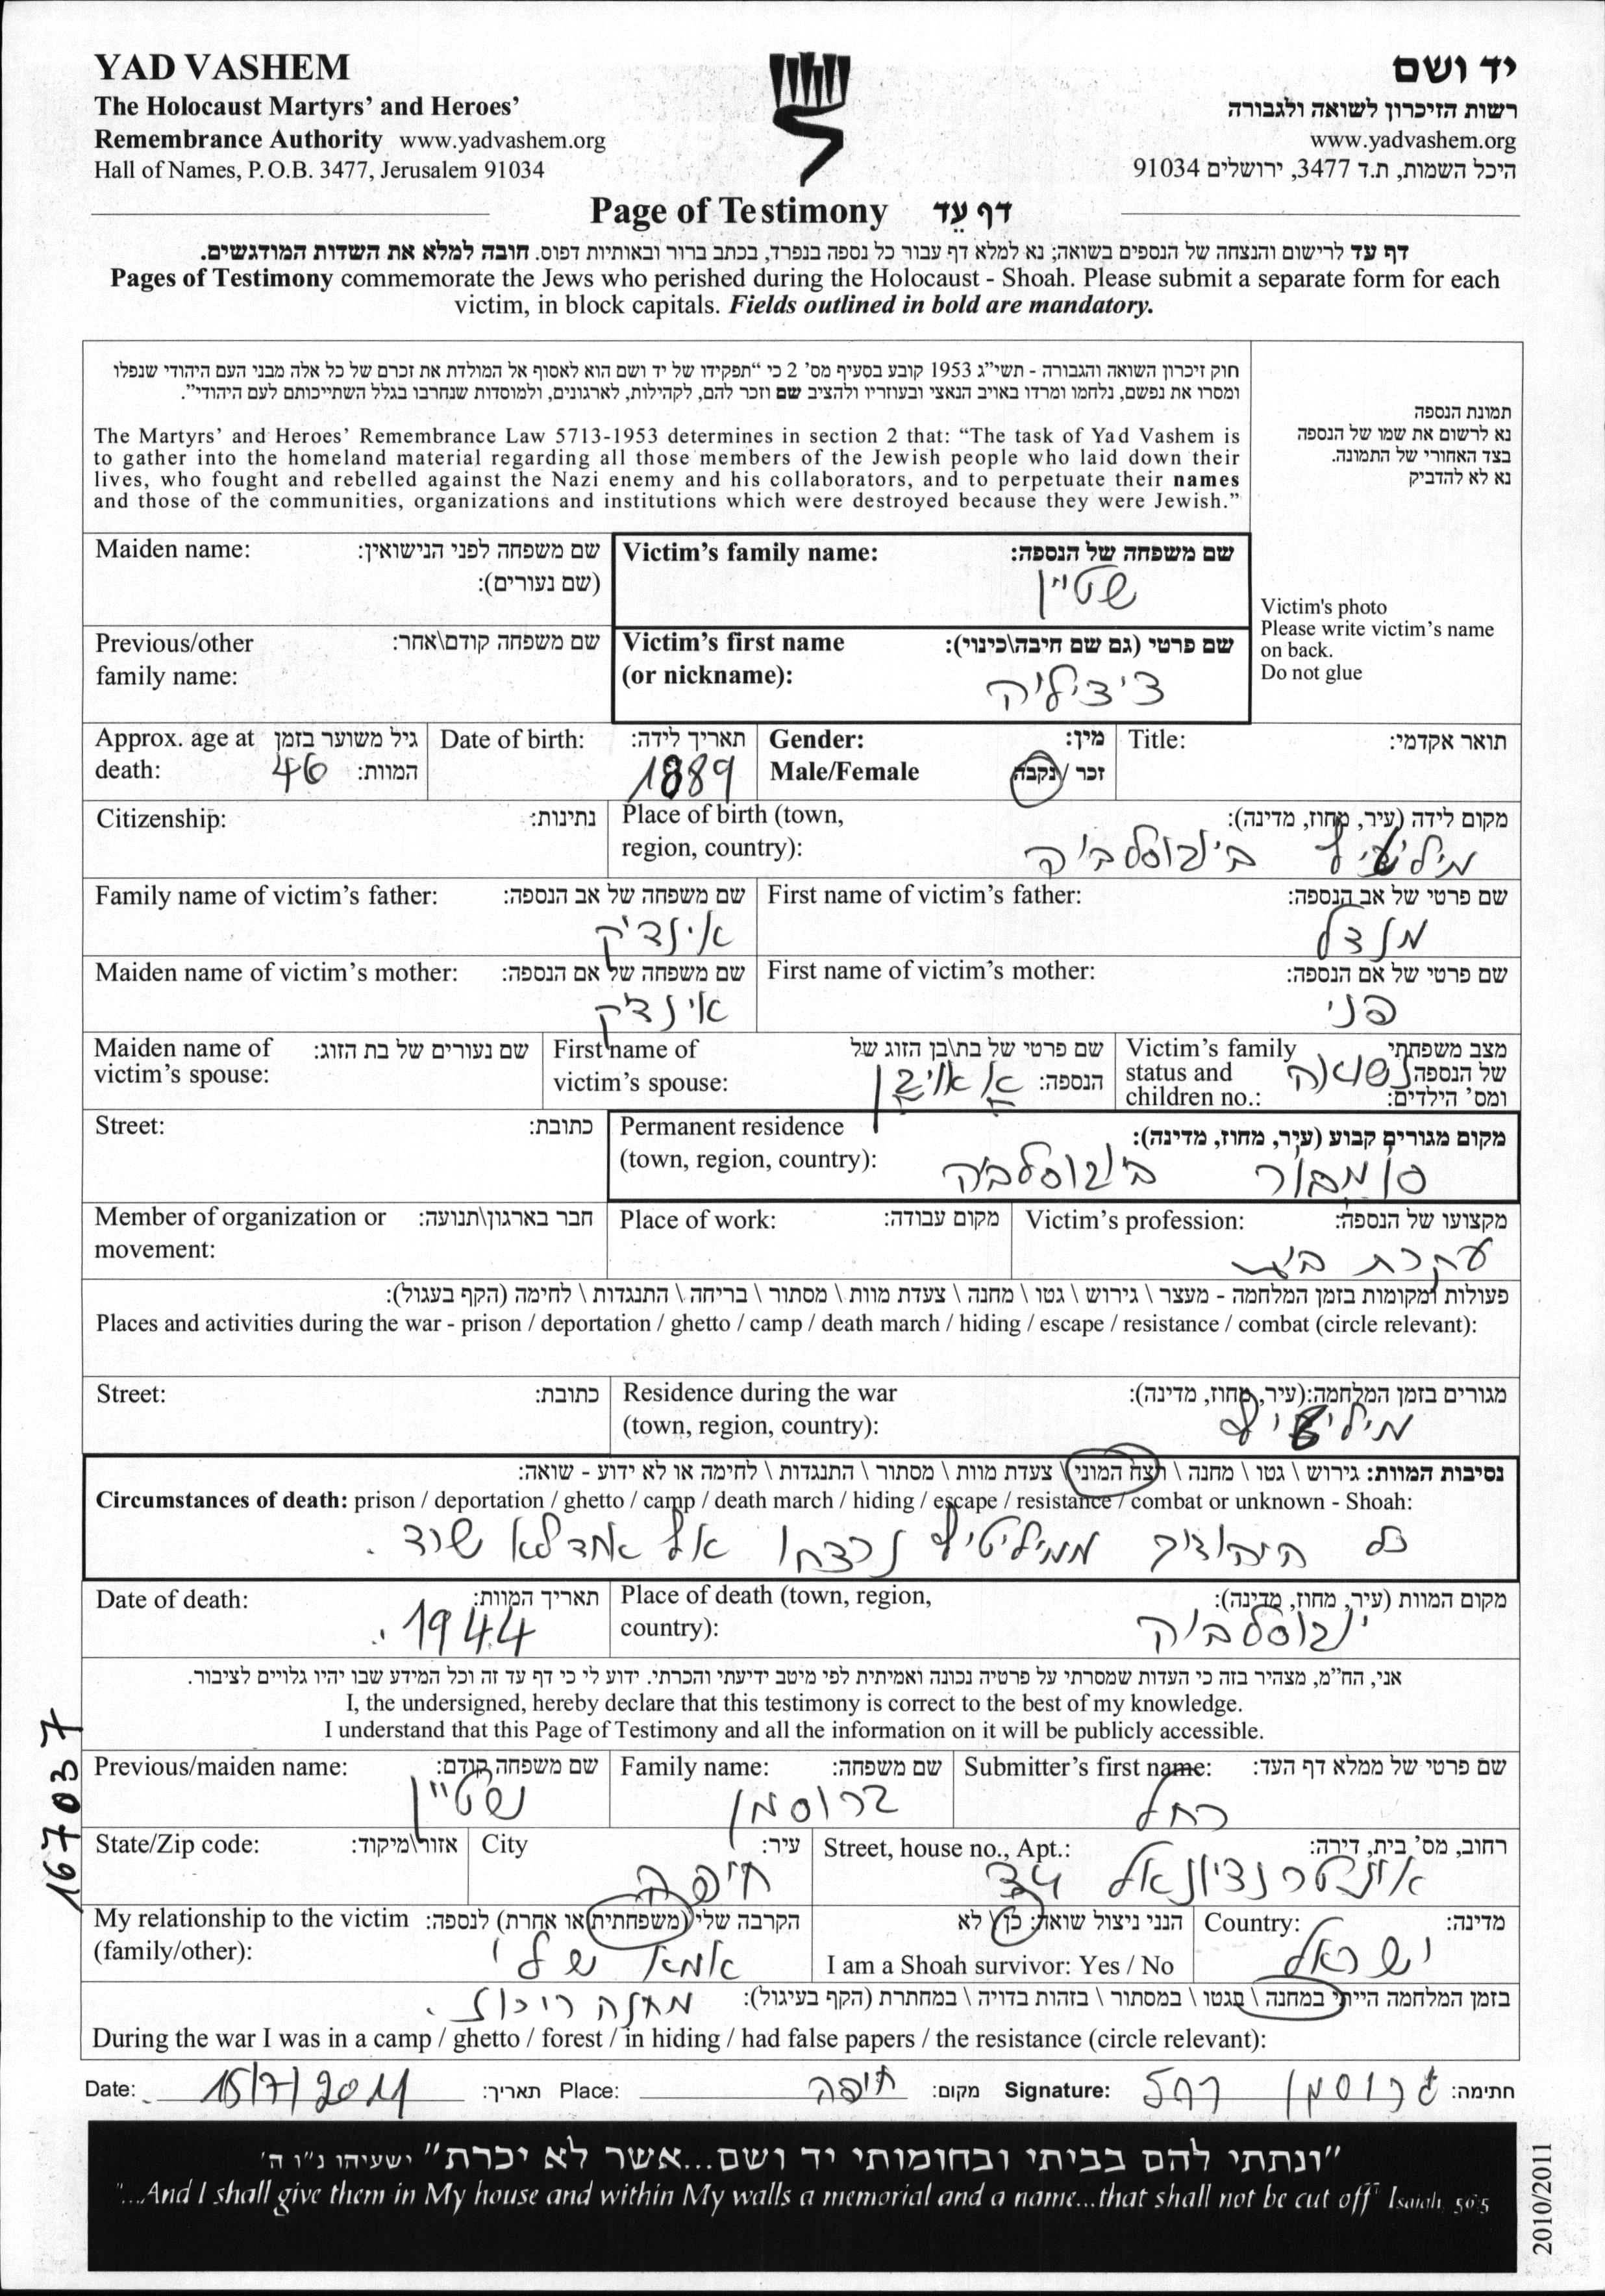 YAD VASHEM
The Holocaust Martyrs’ and Heroes’
Remembrance Authority www.yadvashem.org
Hall of Names, P.O.B. 3477, Jerusalem 91034
יד ושם
רשות הזיכרון לשואה ולגבורה
www.yadvashem.org
היכל השמות, ת.ד 3477, ירושלים 91034
Page of Testimony דף עֵד
דף עד לרישום והנצחה של הנספים בשואה; נא למלא דף עבור כל נספה בנפרד, בכתב ברור ובאותיות דפוס. חובה למלא את השדות המודגשים.
Pages of Testimony commemorate the Jews who perished during the Holocaust - Shoah. Please submit a separate form for each
victim, in block capitals. Fields outlined in bold are mandatory.
חוק זיכרון השואה והגבורה - תשי״ג 1953 קובע בסעיף מס׳ 2 כי “תפקידו של יד ושם הוא לאסוף אל המולדת את זכרם של כל אלה מבני העם היהודי שנפלו
ומסרו את נפשם, נלחמו ומרדו באויב הנאצי ובעוזריו ולהציב שם וזכר להם, לקהילות, לארגונים, ולמוסדות שנחרבו בגלל השתייכותם לעם היהודי”.
The Martyrs’ and Heroes’ Remembrance Law 5713-1953 determines in section 2 that: “The task of Yad Vashem is
to gather into the homeland material regarding all those members of the Jewish people who laid down their
lives, who fought and rebelled against the Nazi enemy and his collaborators, and to perpetuate their names
and those of the communities, organizations and institutions which were destroyed because they were Jewish.”
תמונת הנספה
נא לרשום את שמו של הנספה
בצד האחורי של התמונה.
נא לא להדביק
Victim's photo
Please write victim’s name
on back.
Do not glue
Maiden name: שם משפחה לפני הנישואין:
(שם נעורים):
Victim’s family name: שם משפחה של הנספה:
שטיין
Previous/other שם משפחה קודם\אחר:
family name:
Victim’s first name שם פרטי (גם שם חיבה\כינוי):
(or nickname): ציציליה
Approx. age at גיל משוער בזמן
death: המוות: 46
Date of birth: תאריך לידה:
1889
Gender: מין:
Male/Female זכר / נקבה
Title: תואר אקדמי:
Citizenship: נתינות:
Place of birth (town, מקום לידה (עיר, מחוז, מדינה):
region, country): מיליטיץ ביגוסלביה
Family name of victim’s father: שם משפחה של אב הנספה:
אינדיק
First name of victim’s father: שם פרטי של אב הנספה:
מנדל
Maiden name of victim’s mother: שם משפחה של אם הנספה:
אינדיק
First name of victim’s mother: שם פרטי של אם הנספה:
פני
Maiden name of שם נעורים של בת הזוג:
victim’s spouse:
First name of שם פרטי של בת\בן הזוג של
victim’s spouse: הנספה:
Victim’s family מצב משפחתי
status and של הנספה נשואה
children no.: ומס׳ הילדים:
Street: כתובת:
Permanent residence מקום מגורים קבוע (עיר, מחוז, מדינה):
(town, region, country): סומבור ביגוסלביה
Member of organization or חבר בארגון\תנועה:
movement:
Place of work: מקום עבודה:
Victim’s profession: מקצועו של הנספה:
עקרת בית
פעולות ומקומות בזמן המלחמה - מעצר \ גירוש \ גטו \ מחנה \ צעדת מוות \ מסתור \ בריחה \ התנגדות \ לחימה (הקף בעגול):
Places and activities during the war - prison / deportation / ghetto / camp / death march / hiding / escape / resistance / combat (circle relevant):
Street: כתובת:
Residence during the war מגורים בזמן המלחמה:(עיר, מחוז, מדינה):
(town, region, country): מיליטיץ
נסיבות המוות: גירוש \ גטו \ מחנה \ רצח המוני \ צעדת מוות \ מסתור \ התנגדות \ לחימה או לא ידוע - שואה:
Circumstances of death: prison / deportation / ghetto / camp / death march / hiding / escape / resistance / combat or unknown - Shoah:
כל היהודים ממיליטיץ נרצחו אף אחד לא שרד.
Date of death: תאריך המוות:
1944
Place of death (town, region, מקום המוות (עיר, מחוז, מדינה):
country): יגוסלביה
אני, הח״מ, מצהיר בזה כי העדות שמסרתי על פרטיה נכונה ואמיתית לפי מיטב ידיעתי והכרתי. ידוע לי כי דף עד זה וכל המידע שבו יהיו גלויים לציבור.
I, the undersigned, hereby declare that this testimony is correct to the best of my knowledge.
I understand that this Page of Testimony and all the information on it will be publicly accessible.
Previous/maiden name: שם משפחה קודם:
שטיין
Family name: שם משפחה:
גרוסמן
Submitter’s first name: שם פרטי של ממלא דף העד:
רחל
State/Zip code: אזור\מיקוד:
City עיר:
חיפה
Street, house no., Apt.: רחוב, מס׳ בית, דירה:
אינטרנציונאל
My relationship to the victim הקרבה שלי (משפחתית או אחרת) לנספה:
(family/other): אמא שלי
הנני ניצול שואה: כן \ לא
I am a Shoah survivor: Yes / No
Country: מדינה:
ישראל
בזמן המלחמה הייתי במחנה \ בגטו \ במסתור \ בזהות בדויה \ במחתרת (הקף בעיגול): מחנה ריכוז.
During the war I was in a camp / ghetto / forest / in hiding / had false papers / the resistance (circle relevant):
Date: 15/7/2011 תאריך: Place: חיפה מקום: Signature: גרוסמן רחל חתימה:
״ונתתי להם בביתי ובחומותי יד ושם...אשר לא יכרת״ ישעיהו נ״ו ה׳
"...And I shall give them in My house and within My walls a memorial and a name...that shall not be cut off" Isaiah, 56:5
167037
2010/2011